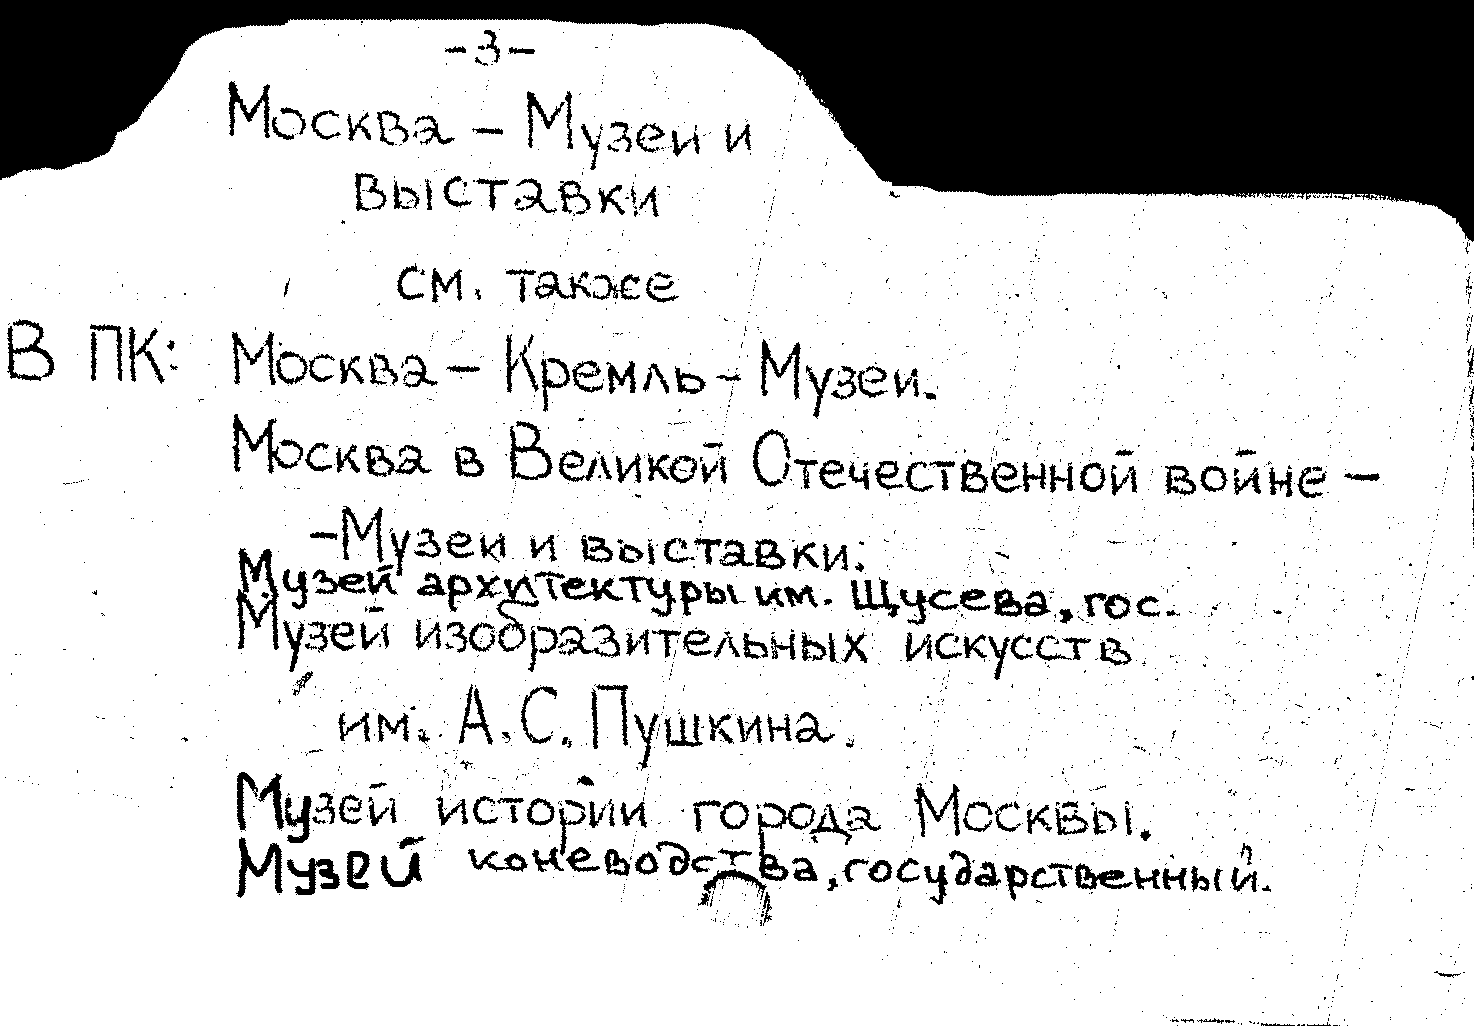 -3-
Москва - Музеи и
выставки
см. также
В ПК: Москва - Кремль - Музеи.
Москва в Великой Отечественной войне -
- Музеи и выставки.
Музей архитектуры им. Щусева, гос.
Музей изобразительных искусств
им. А.С. Пушкина.
Музей истории города Москвы.
Музей коневодства, государственный.